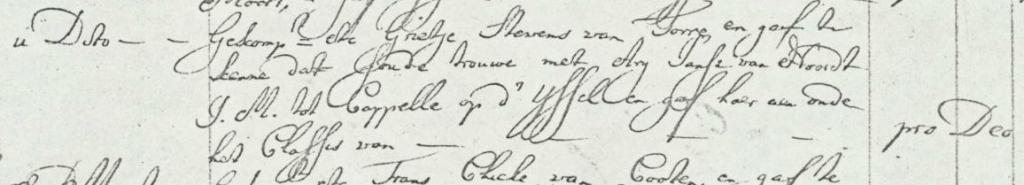 u Dito — — Gekomp:t — etc Grietje Stevens van Jorge, en gaf te
kenne dat soude trouwe met Ary Jansz van Noordt
J. M. tot Cappelle op d' Yssel en gaf haer aen onde
het Classis van — — — pro Deo
Frans van en gaf te